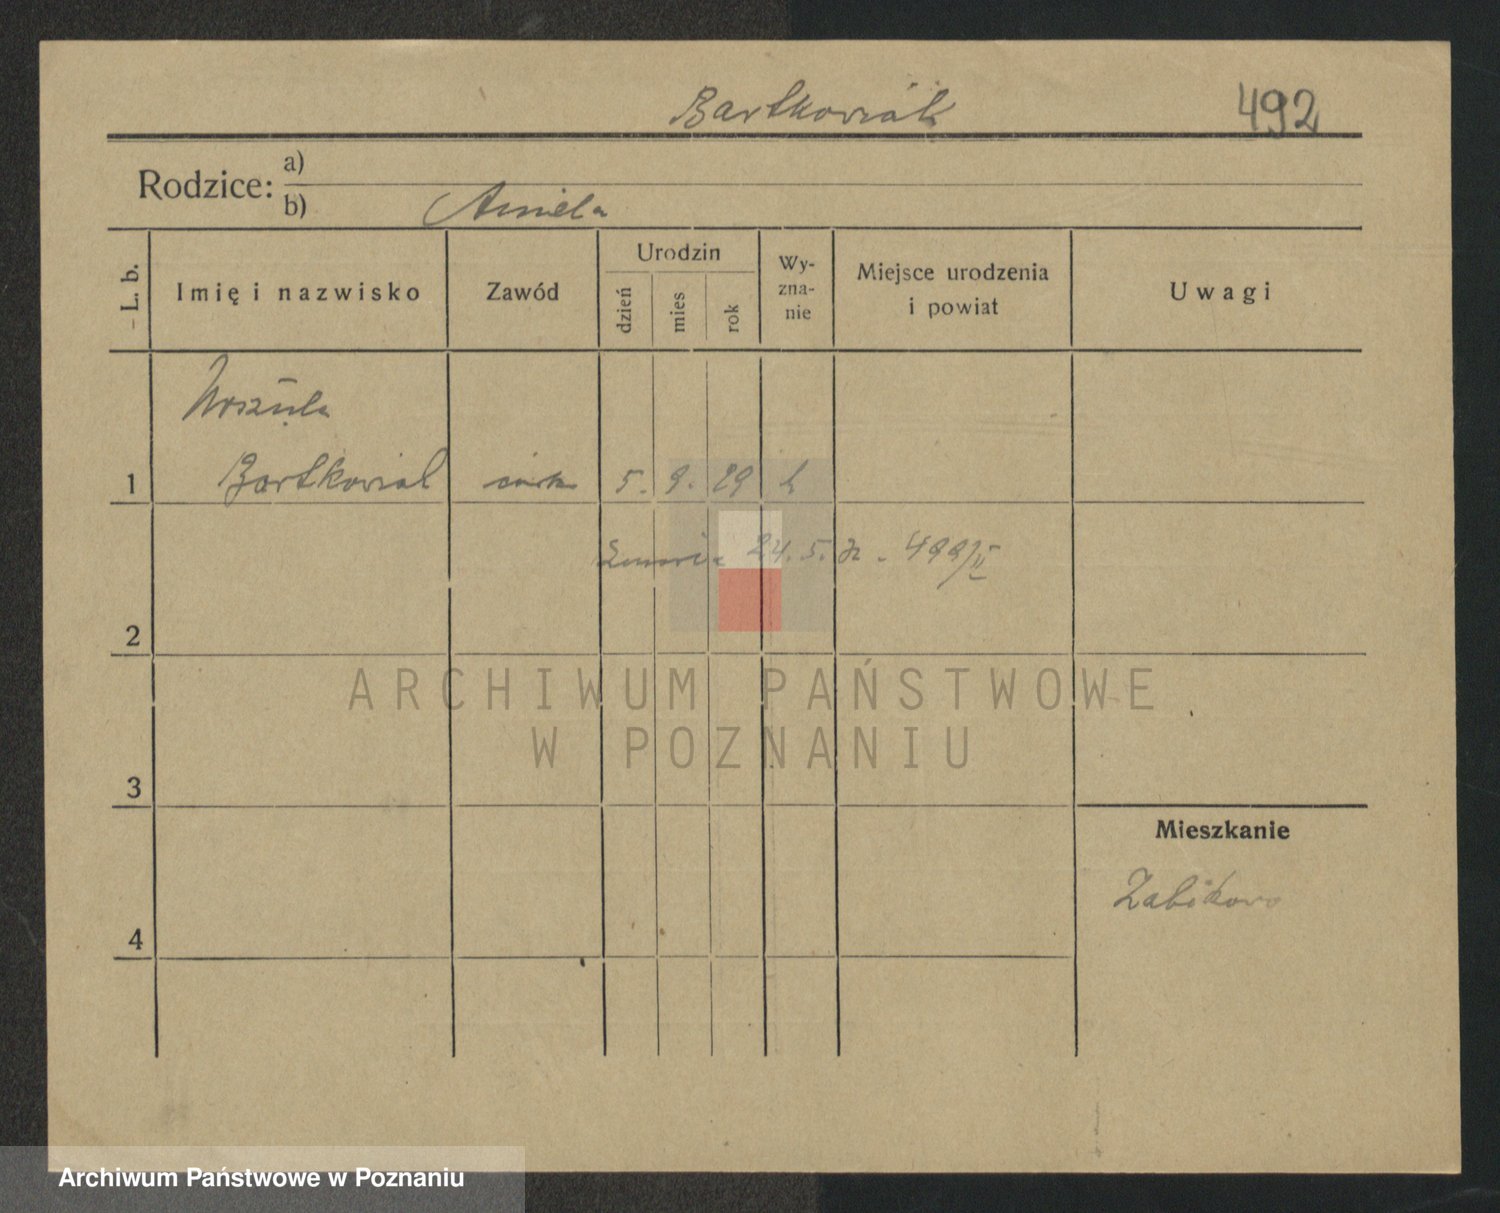 Bartkowiak
492
Rodzice: a)
b) Aniela
L. b.
Imię i nazwisko
Zawód
Urodzin
dzień
mies
rok
Wy-
zna-
nie
Miejsce urodzenia
i powiat
Uwagi
Urszula
1 Bartkowiak córka 5. 9. 29
24. 5.
2
ARCHIWUM PAŃSTWOWE
W POZNANIU
3
Mieszkanie
Żabikowo
4
Archiwum Państwowe w Poznaniu